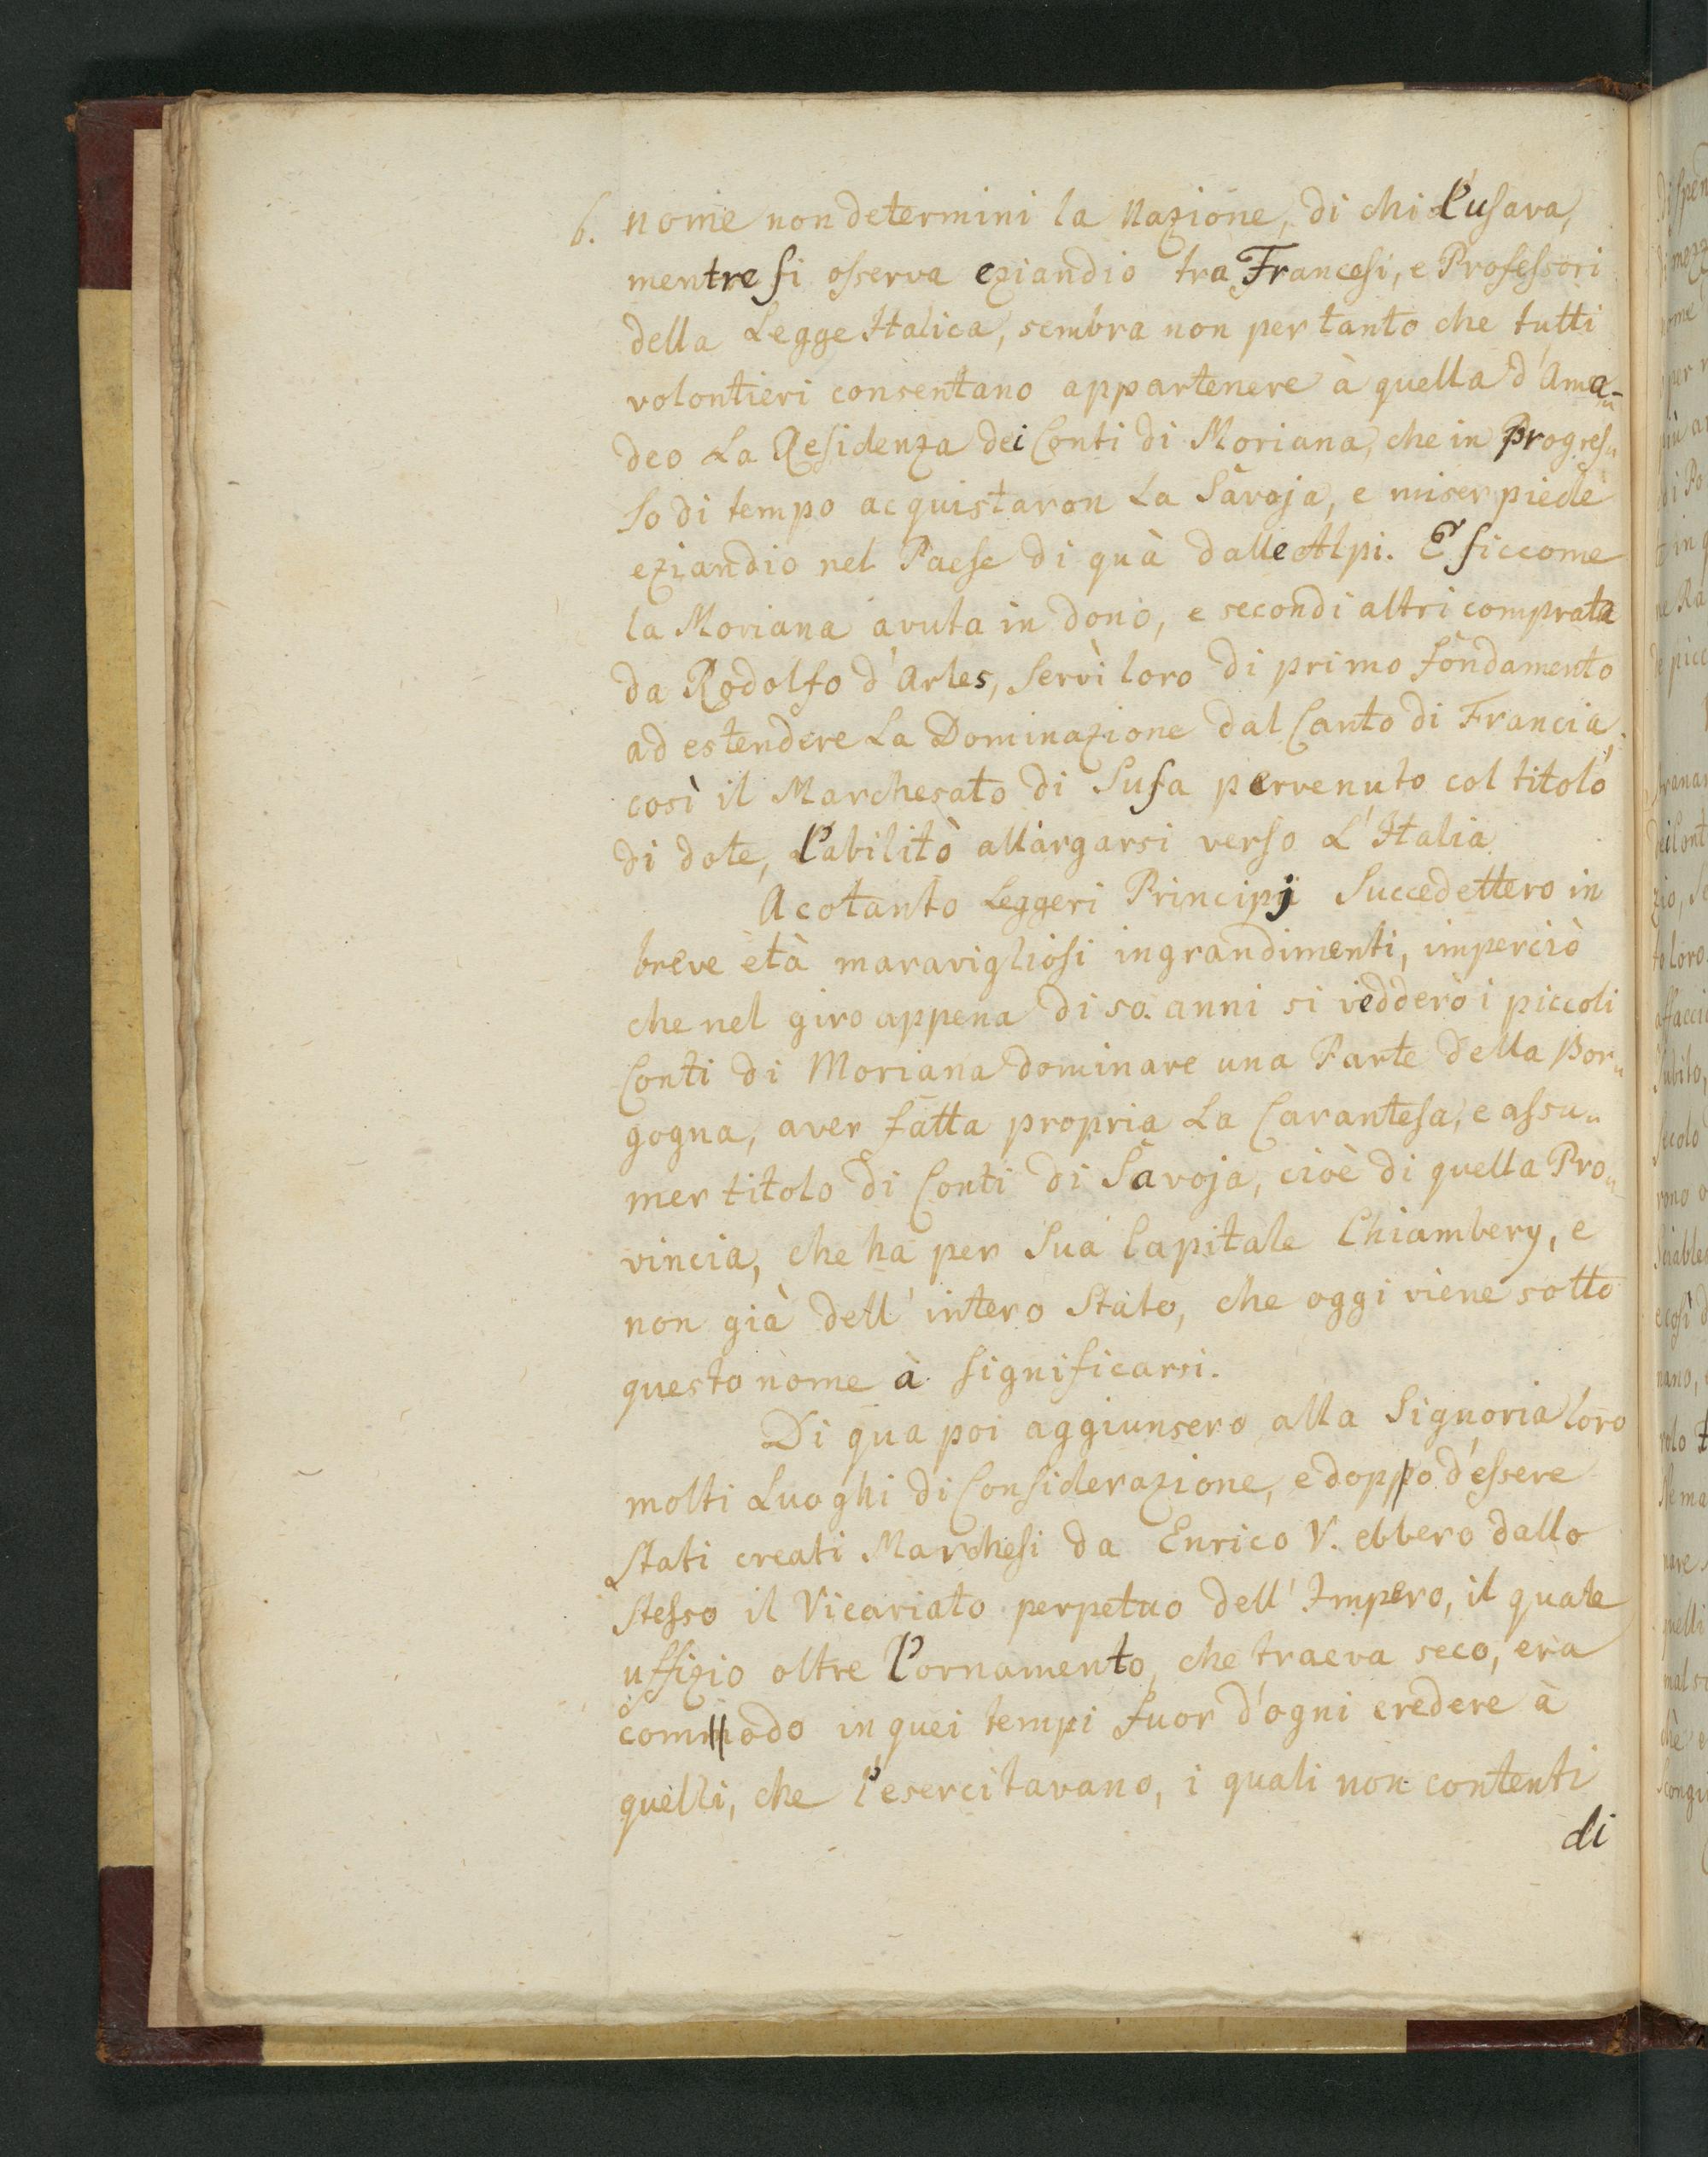 6. nome non determini la Nazione, di chi l'usava,
mentre si osserva eziandio tra Francesi, e Professori
della Legge Italica, sembra non per tanto che tutti
volontieri consentano appartenere à quella d'Ama-
deo La Residenza dei Conti di Moriana, che in progres„
so di tempo acquistaron La Savoja, e miser piede
eziandio nel Paese di quà dalle Alpi. E siccome
la Moriana avuta in dono, e secondi altri comprata
da Rodolfo d'Arles, servì loro di primo fondamento
ad estendere La Dominazione dal Canto di Francia,
così il Marchesato di Susa pervenuto col titolo
di dote, l'abilitò allargarsi verso L'Italia
A cotanto Leggeri Principj Succedettero in
breve età maravigliosi ingrandimenti, imperciò
che nel giro appena di 50. anni si veddero i piccoli
Conti di Moriana dominare una Parte della Bor„
gogna, aver fatta propria La Tarantesa, e assu„
mer titolo di Conti di Savoja, cioè di quella Pro„
vincia, che ha per Sua Capitale Chiambery, e
non già dell'intero Stato, che oggi viene sotto
questo nome à significarsi.
Di qua poi aggiunsero alla Signoria loro
molti Luoghi di Considerazione, e doppo d'essere
Stati creati Marchesi da Enrico V. ebbero dallo
Stesso il Vicariato perpetuo dell'Impero, il quale
uffizio oltre l'ornamento, che traeva seco, era
commodo in quei tempi fuor d'ogni credere à
quelli, che l'esercitavano, i quali non contenti
di